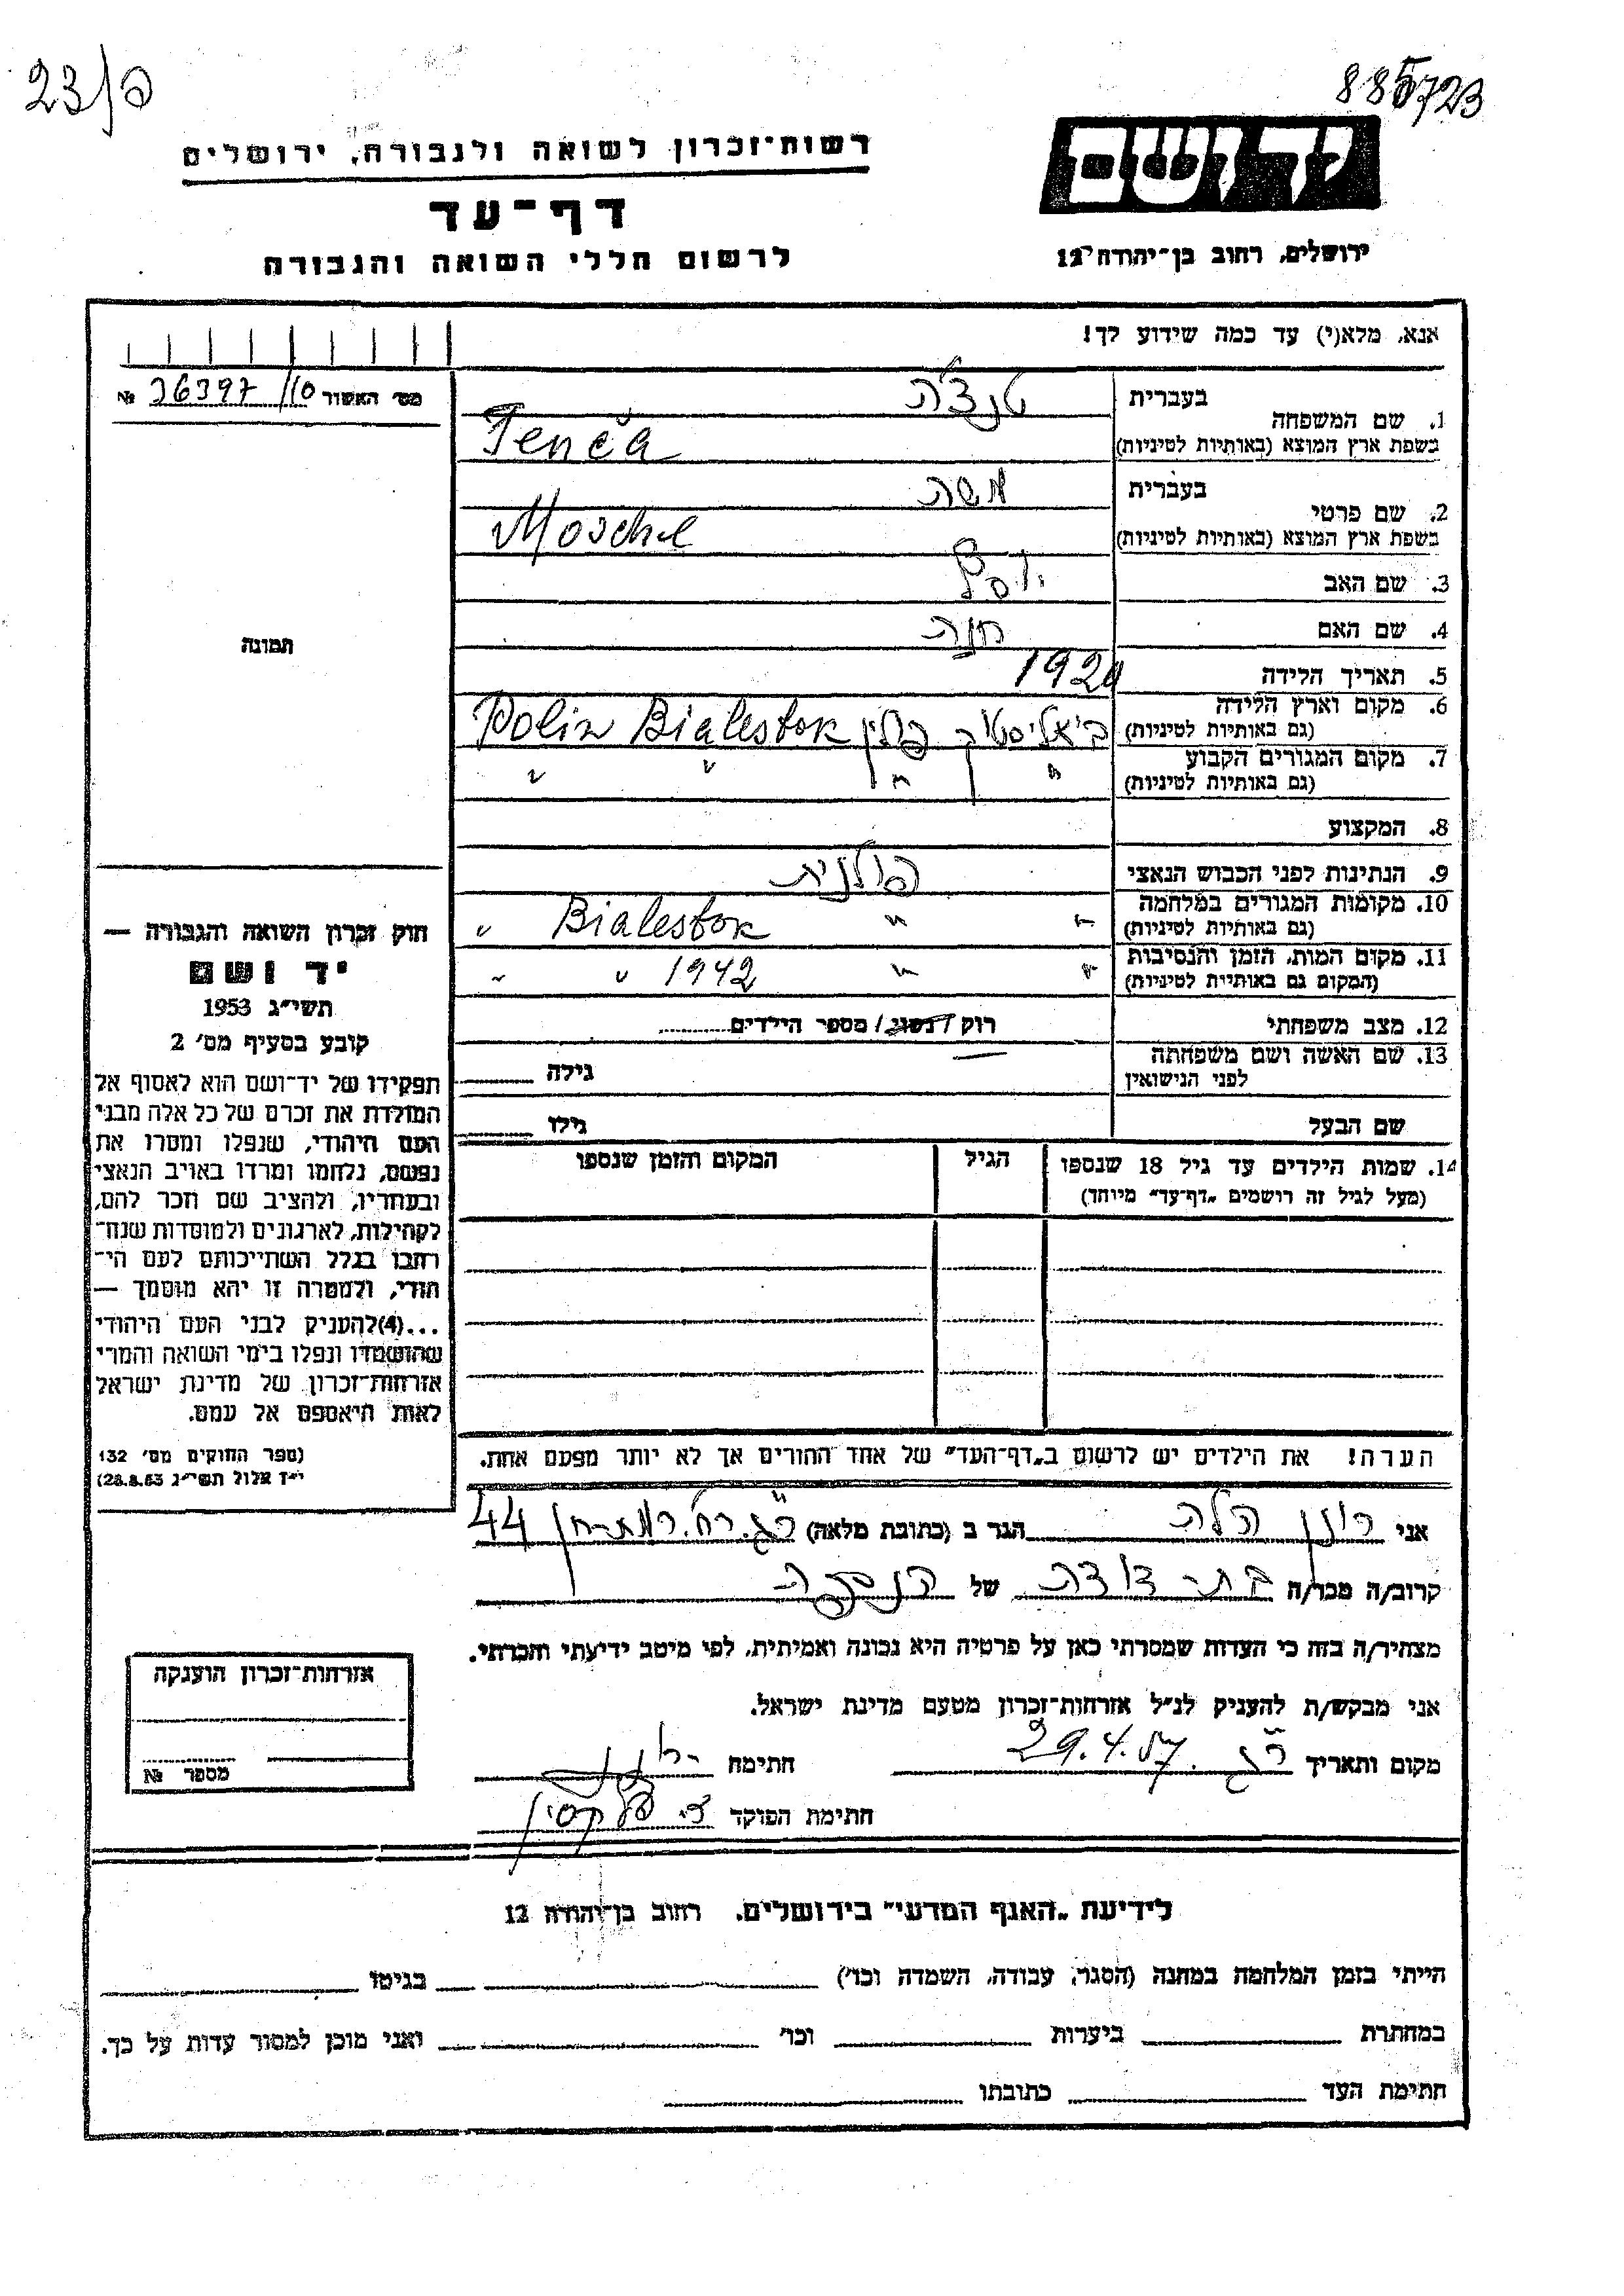 23/פ
885723
יד ושם
ירושלים, רחוב בן־יהודה 12
רשות־זכרון לשואה ולגבורה, ירושלים
דף־עד
לרשום חללי השואה והגבורה
אנא, מלא(י) עד כמה שידוע לך!
מס׳ האשור 36397/10 №
תמונה
1. שם המשפחה בעברית טנצ'ה
בשפת ארץ המוצא (באותיות לטיניות) Tenča
2. שם פרטי בעברית משה
בשפת ארץ המוצא (באותיות לטיניות) Mosche
3. שם האב יוסף
4. שם האם חנה
5. תאריך הלידה 1920
6. מקום וארץ הלידה ביאליסטוק פולין Bialestok Polin
(גם באותיות לטיניות)
7. מקום המגורים הקבוע " " " "
(גם באותיות לטיניות)
8. המקצוע
9. הנתינות לפני הכבוש הנאצי פולנית
10. מקומות המגורים במלחמה " " Bialestok "
(גם באותיות לטיניות)
11. מקום המות, הזמן והנסיבות " " 1942 " "
(המקום גם באותיות לטיניות)
12. מצב משפחתי רוק / נשוי / מספר הילדים
13. שם האשה ושם משפחתה גילה
לפני הנישואין
שם הבעל גילו
14. שמות הילדים עד גיל 18 שנספו הגיל המקום והזמן שנספו
(מעל לגיל זה רושמים „דף־עד״ מיוחד)
חוק זכרון השואה והגבורה —
יד ושם
תשי״ג 1953
קובע בסעיף מס׳ 2
תפקידו של יד־ושם הוא לאסוף אל
המולדת את זכרם של כל אלה מבני
העם היהודי, שנפלו ומסרו את
נפשם, נלחמו ומרדו באויב הנאצי
ובעוזריו, ולהציב שם וזכר להם,
לקהילות, לארגונים ולמוסדות שנח־
רחבו בגלל השתייכותם לעם הי־
הודי, ולמטרה זו יהא מוסמך —
...(4)להעניק לבני העם היהודי
שהושמדו ונפלו בימי השואה והמרי
אזרחות־זכרון של מדינת ישראל
לאות היאספם אל עמם.
(ספר החוקים מס׳ 132
י״ז אלול תשי״ג 28.8.53)
הערה! את הילדים יש לרשום ב„דף־העד״ של אחד ההורים אך לא יותר מפעם אחת.
אני רונן הלה הגר ב (כתובת מלאה) ר"ג. רח. רמת-חן 44
קרוב/ה מכר/ה בת-דודה של הנספה
מצהיר/ה בזה כי העדות שמסרתי כאן על פרטיה היא נכונה ואמיתית, לפי מיטב ידיעתי והכרתי.
אני מבקש/ת להעניק לנ״ל אזרחות־זכרון מטעם מדינת ישראל.
מקום ותאריך ר"ג. 29.4.57 חתימה
חתימת הפוקד
אזרחות־זכרון הוענקה
מספר №
לידיעת „האגף המדעי״ בירושלים, רחוב בן־יהודה 12
הייתי בזמן המלחמה במחנה (הסגר, עבודה, השמדה וכו׳) בגיטו
במחתרת ביערות וכו׳ ואני מוכן למסור עדות על כך.
חתימת העד כתובתו